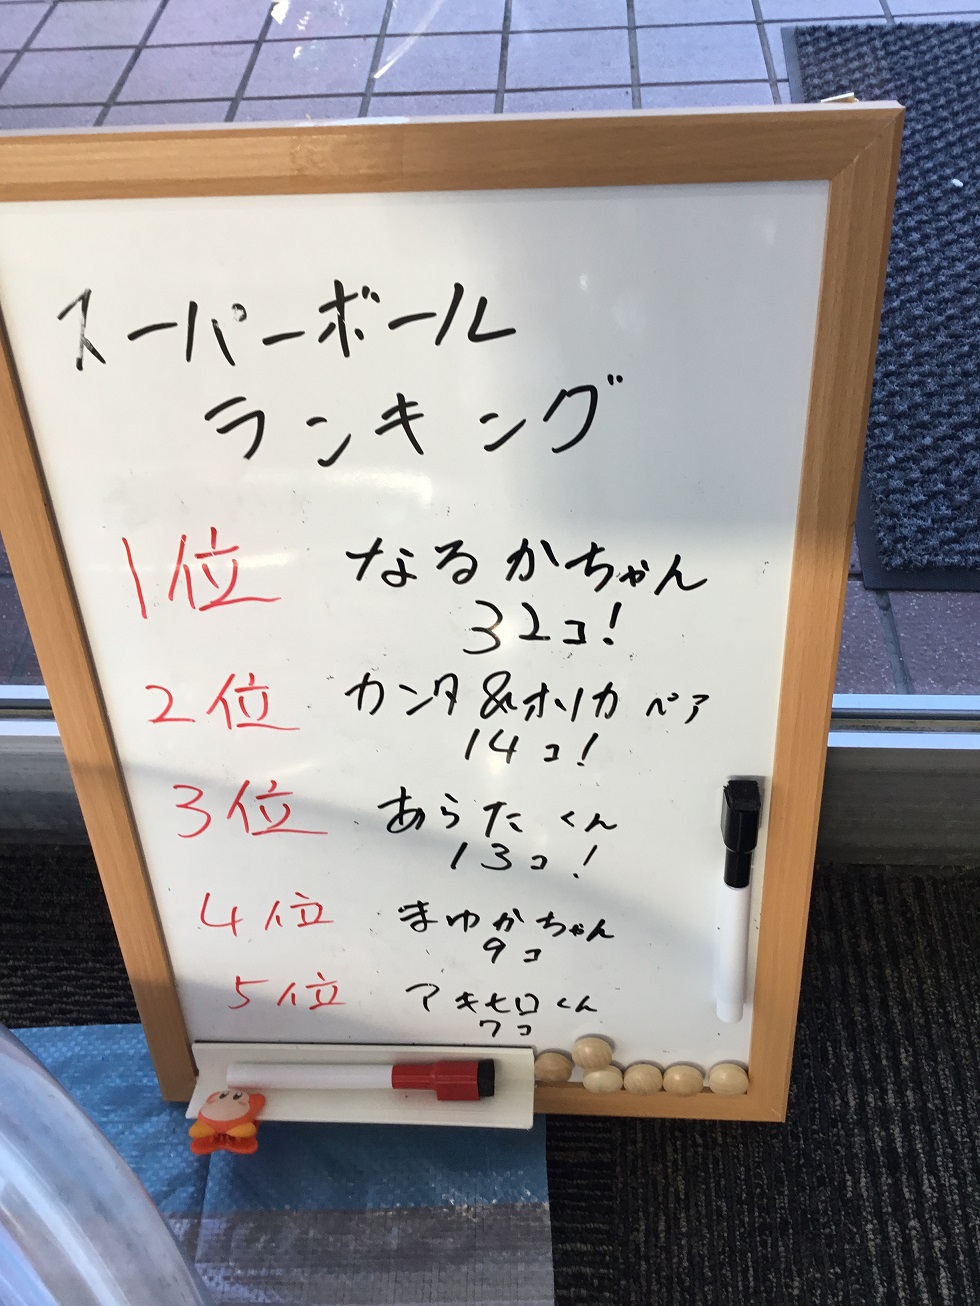 スーパーボール
ランキング
1位 なるかちゃん
32コ!
2位 カンタ&ホリカ ペア
14コ!
3位 あらた くん
13コ!
4位 まゆかちゃん
9コ
5位 アキヒロくん
7コ